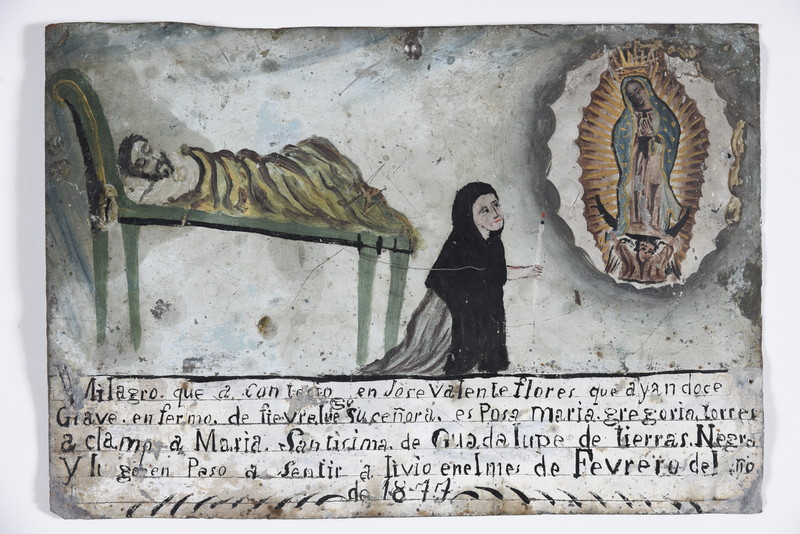 Milagro. que a. con tecio en Jose Valente flores que ayandoce
Grave. en fermo. de fievre. luego Suceñora. es Posa maria. gregoria. torres
a clamo a Maria. Santisima. de Guadalupe de tierras. Negra
y lu go en Peso a Sentir a livio enelmes de Fevrero del año
de 1877